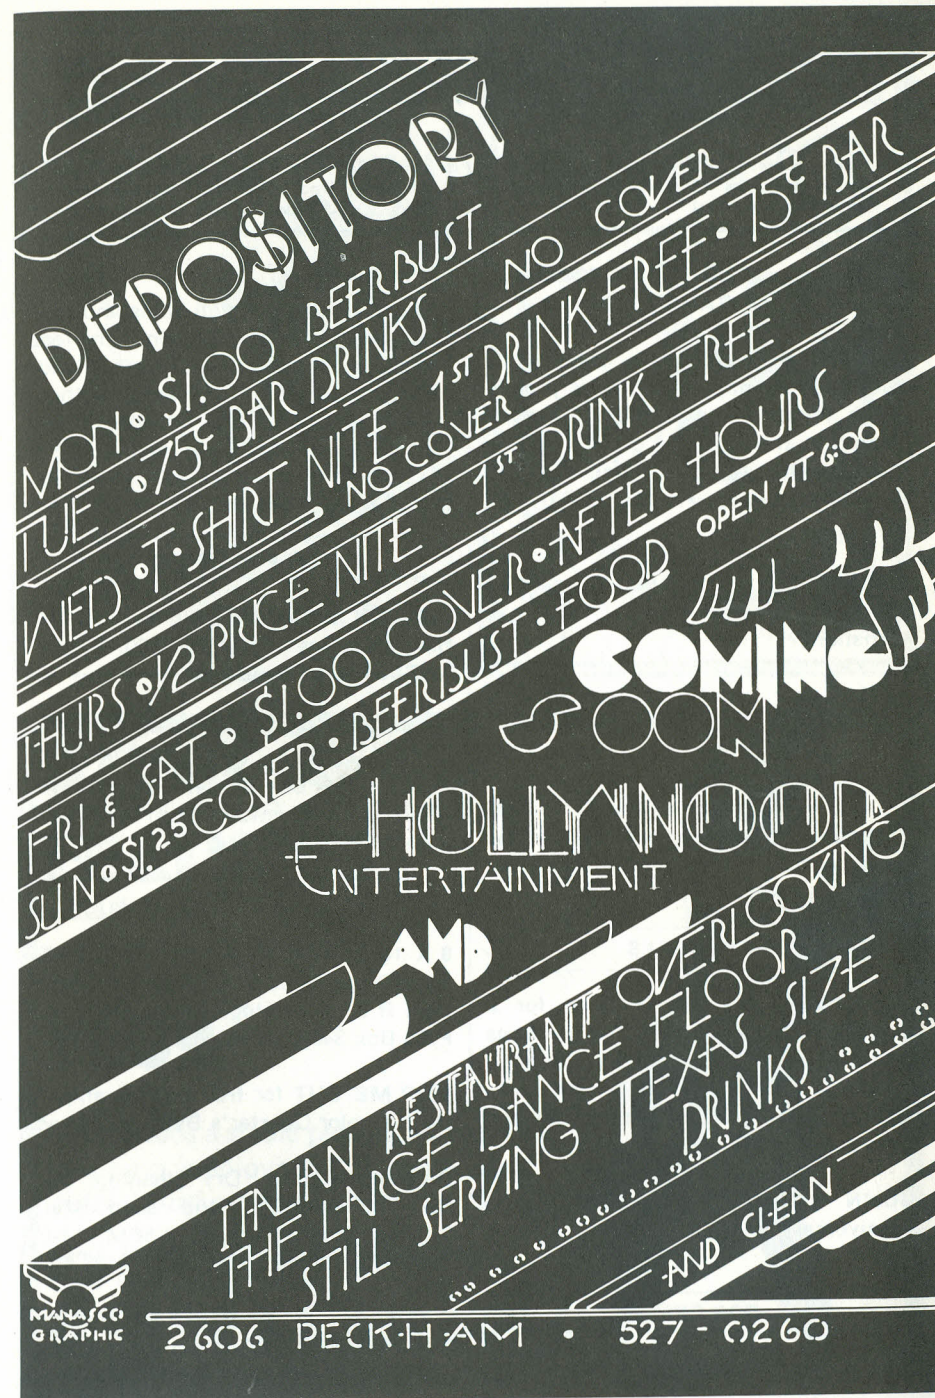 DEPO$ITORY
MON • $1.00 BEER BUST
TUE • 75¢ BAR DRINKS NO COVER
WED • T-SHIRT NITE 1ST DRINK FREE • 75¢ BAR
NO COVER
THURS • 1/2 PRICE NITE • 1ST DRINK FREE
FRI & SAT • $1.00 COVER • AFTER HOURS
SUN • $1.25 COVER • BEER BUST • FOOD OPEN AT 6:00
COMING
SOON
HOLLYWOOD
ENTERTAINMENT
AND
ITALIAN RESTAURANT OVERLOOKING
THE LARGE DANCE FLOOR
STILL SERVING TEXAS SIZE
DRINKS
AND CLEAN
MANASCO
GRAPHIC
2606 PECKHAM • 527-0260